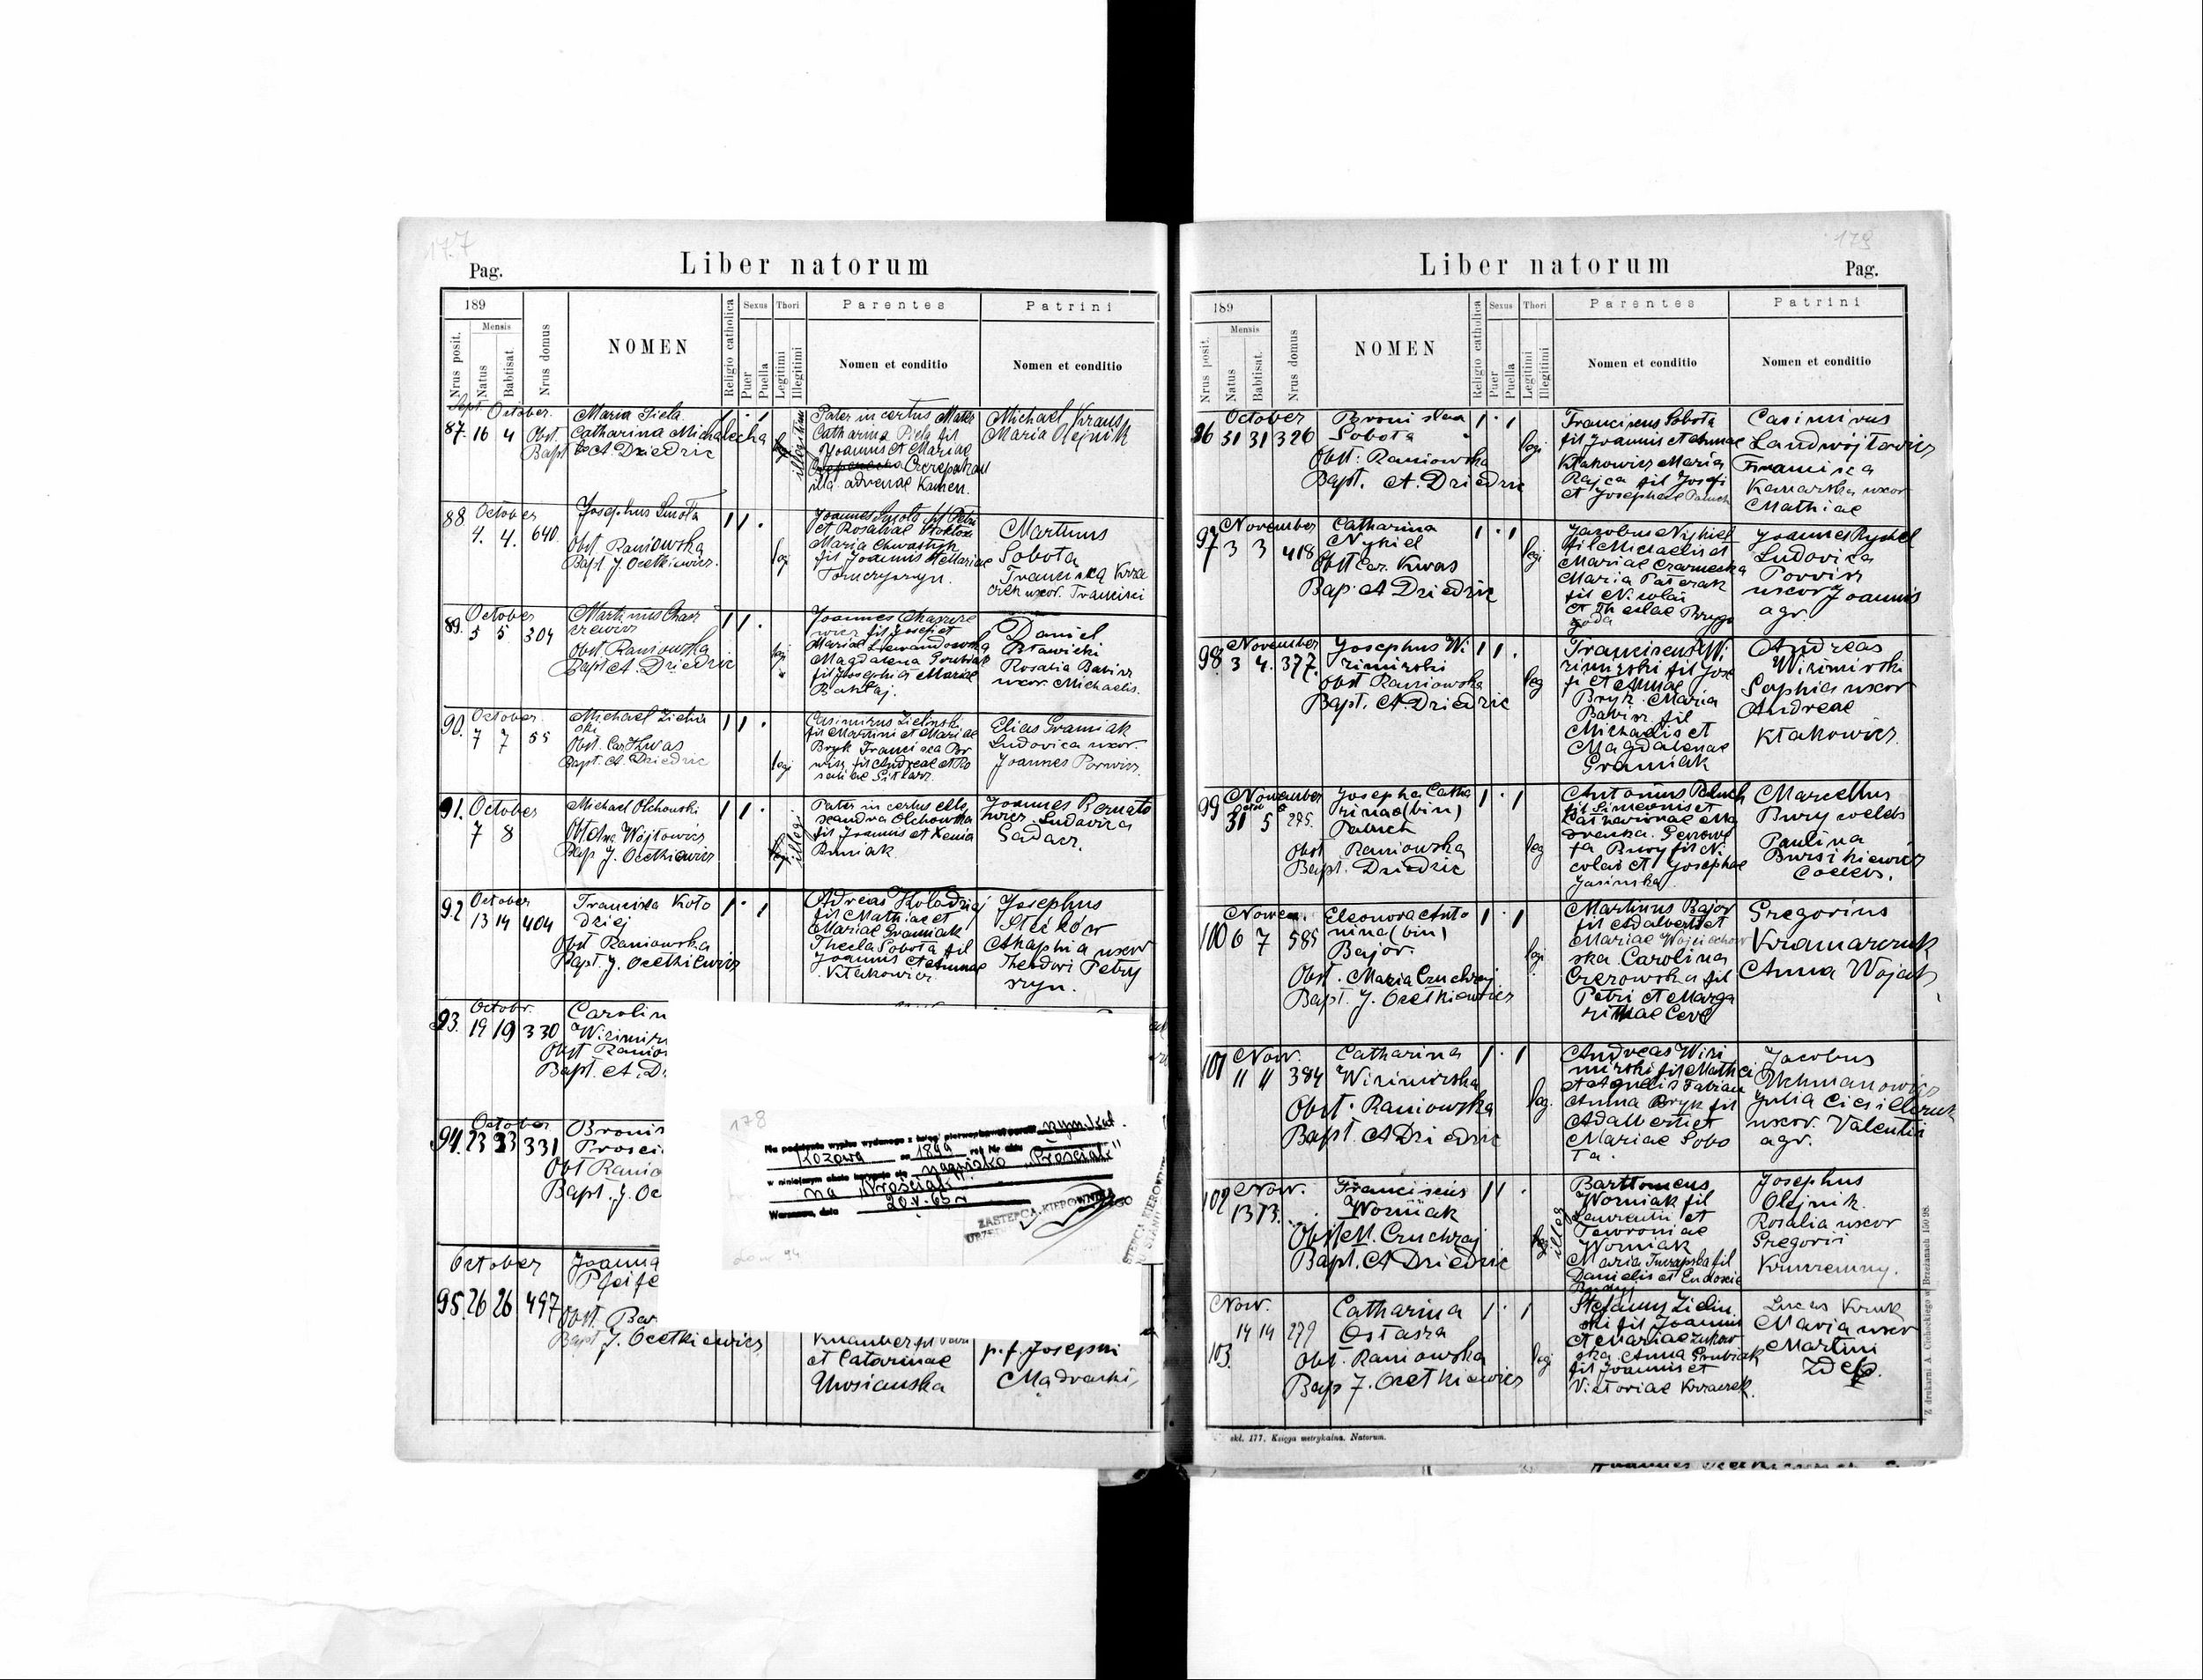 177
Liber natorum
Pag.
189
Nrus posit.
Mensis
Natus
Babtisat.
Nrus domus
NOMEN
Religio catholica
Sexus
Puer
Puella
Thori
Legitimi
Illegitimi
Parentes
Nomen et conditio
Patrini
Nomen et conditio
Sept. October.
87. 16 4
Maria Piela
Catharina Michalecha
Obst.
Bapt A Dziedzic
illegitim
Pater incertus Mater
Catharina Piela fil
Joannis et Mariae
Czerepahau
illa. advenae Kamen.
Michael Kraus
Maria Olejnik
88 October
4. 4. 640
Josephus Smota
Obst Raniowska
Bapt J. Ocetkiewicz.
legi
Joannes Smota fil Petri
et Rosaliae
Maria Chwastyk
fil Joannis et Mariae
Tomczyszyn.
Martinus
Sobota
Francisca Krza
czek uxor. Francisci
89. October
5 5 304
Martinus Charz
rewicz
Obst Raniowska
Bapt A. Dziedzic
legi
Joannes Charze
wicz fil Josefi et
Mariae Lewandowska
Magdalena Grubiak
fil Josephi et Mariae
Bahtaj.
Daniel
Btawicki
Rosalia Babisz
uxor. Michaelis.
90. October
7 7 55
Michael Zielin
ski
Obst. Car Kwas
Bapt. A. Dziedzic
legi
Casimirus Zielinski
fil Martini et Mariae
Bryk Francisca Por
wisz fil Andreae et Ro
saliae Sitlarz
Elias Graniak
Ludovica uxor.
Joannes Porwisz.
91. October
7 8
Michael Olchowski
Obst Wojtowicz
Bap J. Ocetkiewicz
illegi
Pater incertus Ale
xandra Olchowska
fil Joannis et Xenia
Buniak.
Joannes Bernato
wicz Ludovica
Sadarz.
92 October
13 14 404
Francisca Koto
dziej
Obst Raniowska
Bapt. J. Ocetkiewicz
Adreas Kolodziej
fil Mathiae et
Mariae Graniak
Thecla Sobota fil
Joannis et Annae
Ktakowicz
Josephus
Steików
Ahaphia uxor
Theodori Petry
szyn.
93. Octobr.
19 19 330
Carolin
Wizimirs
Obst Raniow
Bapt. A. D
94. October
23 23 331
Bronis
Prosci
Obt Ranio
Bapt. J. Oc
178
Na podstawie wypisu wydanego z księgi pierwopisowej parafii rzym. kat.
Kozowa za 1899 rok Nr aktu
w niniejszym akcie koryguje się nazwisko "Prościak"
na "Prościak".
Warszawa, dnia 20.V.65 r
ZASTĘPCA KIEROWNIKA
October
95. 26 26 497
Joanna
Pfeife
Obst. Bar
Bapt J. Ocetkiewicz
Knauber fil
et Catarinae
Urosianska
p. f. Josephi
Madraski,
179
Liber natorum
Pag.
189
Nrus posit.
Mensis
Natus
Babtisat.
Nrus domus
NOMEN
Religio catholica
Sexus
Puer
Puella
Thori
Legitimi
Illegitimi
Parentes
Nomen et conditio
Patrini
Nomen et conditio
October
96 31 31 326
Bronislava
Sobota
Obst. Raniowska
Bapt. A. Dziedzic
legi
Franciscus Sobota
fil Joannis et Annae
Ktakowicz Maria
Rajca fil Josefi
et Josephae Paluch
Casimirus
Landwójtowicz
Francisca
Kanarska uxor
Mathiae
97 November
3 3 418
Catharina
Nykiel
Obst Car. Kwas
Bap. A Dziedzic
legi
Jacobus Nykiel
fil Michaelis et
Mariae Czarnecka
Maria Paterak
fil Nicolai
et Theclae Przygo
goda
Joannes Rychel
Ludovica
Porwisz
uxor Joannis
agr.
98 November
3 4. 377.
Josephus Wi
zimirski
Obst Raniowska
Bapt. A. Dziedzic
leg
Franciscus Wi
zimirski fil Jose
fi et Annae
Bryk. Maria
Babisz fil
Michaelis et
Magdalenae
Graniak
Andreas
Wizimirski
Sophia uxor
Andreae
Ktakowicz.
99 November
31 5 275.
Josepha Catha
rinae (bin)
Paluch
Obst Raniowska
Bapt. Dziedzic
leg
Antonius Paluch
fil Simeonis et
Catharinae Ma
zurenka. Genowe
fa Bury fil Ni
colai et Josephae
Jasinska
Marcellus
Bury coelebs
Paulina
Bursikiewicz
Coelebs.
100 Novem.
6 7 585
Eleonora Anto
nina (bin)
Bajor.
Obst. Maria Czuchraj
Bapt. J. Ocetkiewicz
legi
Martinus Bajor
fil Adalberti et
Mariae Wojciechow
ska Carolina
Czerowska fil
Petri et Marga
rithae Cevc
Gregorius
Kramarczuk
Anna Wojcik
101 Nov.
11 11 384
Catharina
Wizimirska
Obst. Raniowska
Bapt. A Dziedzic
leg.
Andreas Wizi
mirski fil Mathei
et Agnetis Fabian
Anna Bryk fil
Adalberti et
Mariae Sobo
ta.
Jacobus
Uchmanowicz
Julia Ciesielczuk
uxor. Valentii
agr.
102 Nov.
13 13.
Franciscus
Wozniak
Obst M. Czuchraj
Bapt. A Dziedzic
illeg
Barttomeus
Wozniak fil
Laurentii et
Fewroniae
Wozniak
Maria Turzapska fil
Danielis et Eudoxie
Josephus
Olejnik.
Rosalia uxor
Gregorii
103. Nov.
14 14 279
Catharina
Ostasza
Obst. Raniowska
Bap J. Ocetkiewicz
legi
Stefanus Zielin
ski fil Joannis
et Mariae Zukow
ska Anna Grubiak
fil Joannis et
Victoriae Krzaczek.
Lucas Kruk
Maria uxor
Martini
Zdeb.
skł. 177. Księga metrykalna. Natorum.
Z drukarni A. Cichockiego w Brzeżanach 150/98.